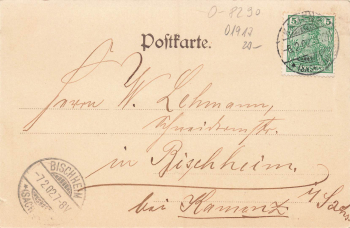 O-8290
01917
20-
Postkarte.
5 5
Herrn W. Lehmann,
Schneidermstr.
in Bischheim.
bei Kamenz i/Sachs.
BISCHHEIM
-7.2.02. 7-8V.